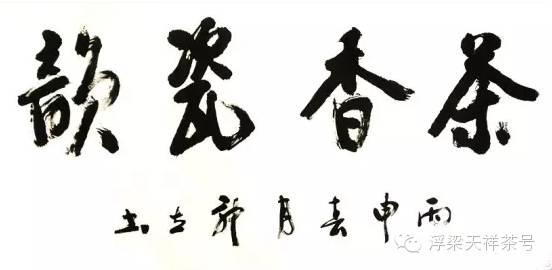 茶香瓷韵
丙申春月
浮梁天祥茶号